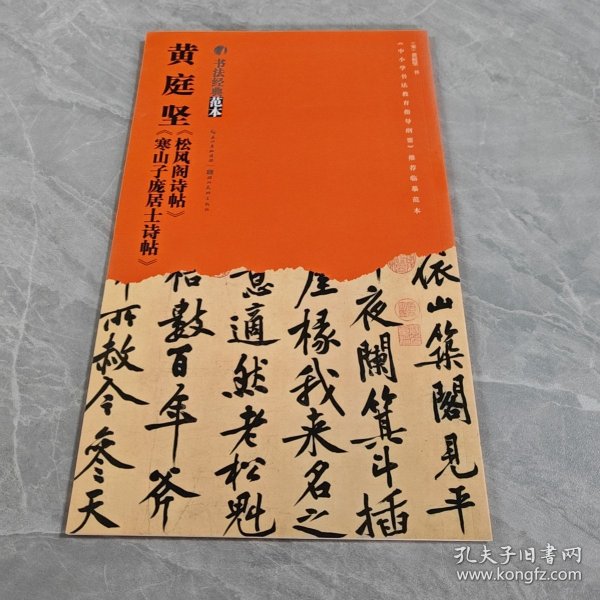 黄庭坚
《松风阁诗帖》
《寒山子庞居士诗帖》
书法经典
范本
《中小学书法教育指导纲要》推荐临摹范本
依山筑阁见平
夜阑箕斗插
屋椽我来名之
意适然老松魁
梧数百年斧
斤所赦今参天
孔夫子旧书网
www.kongfz.com